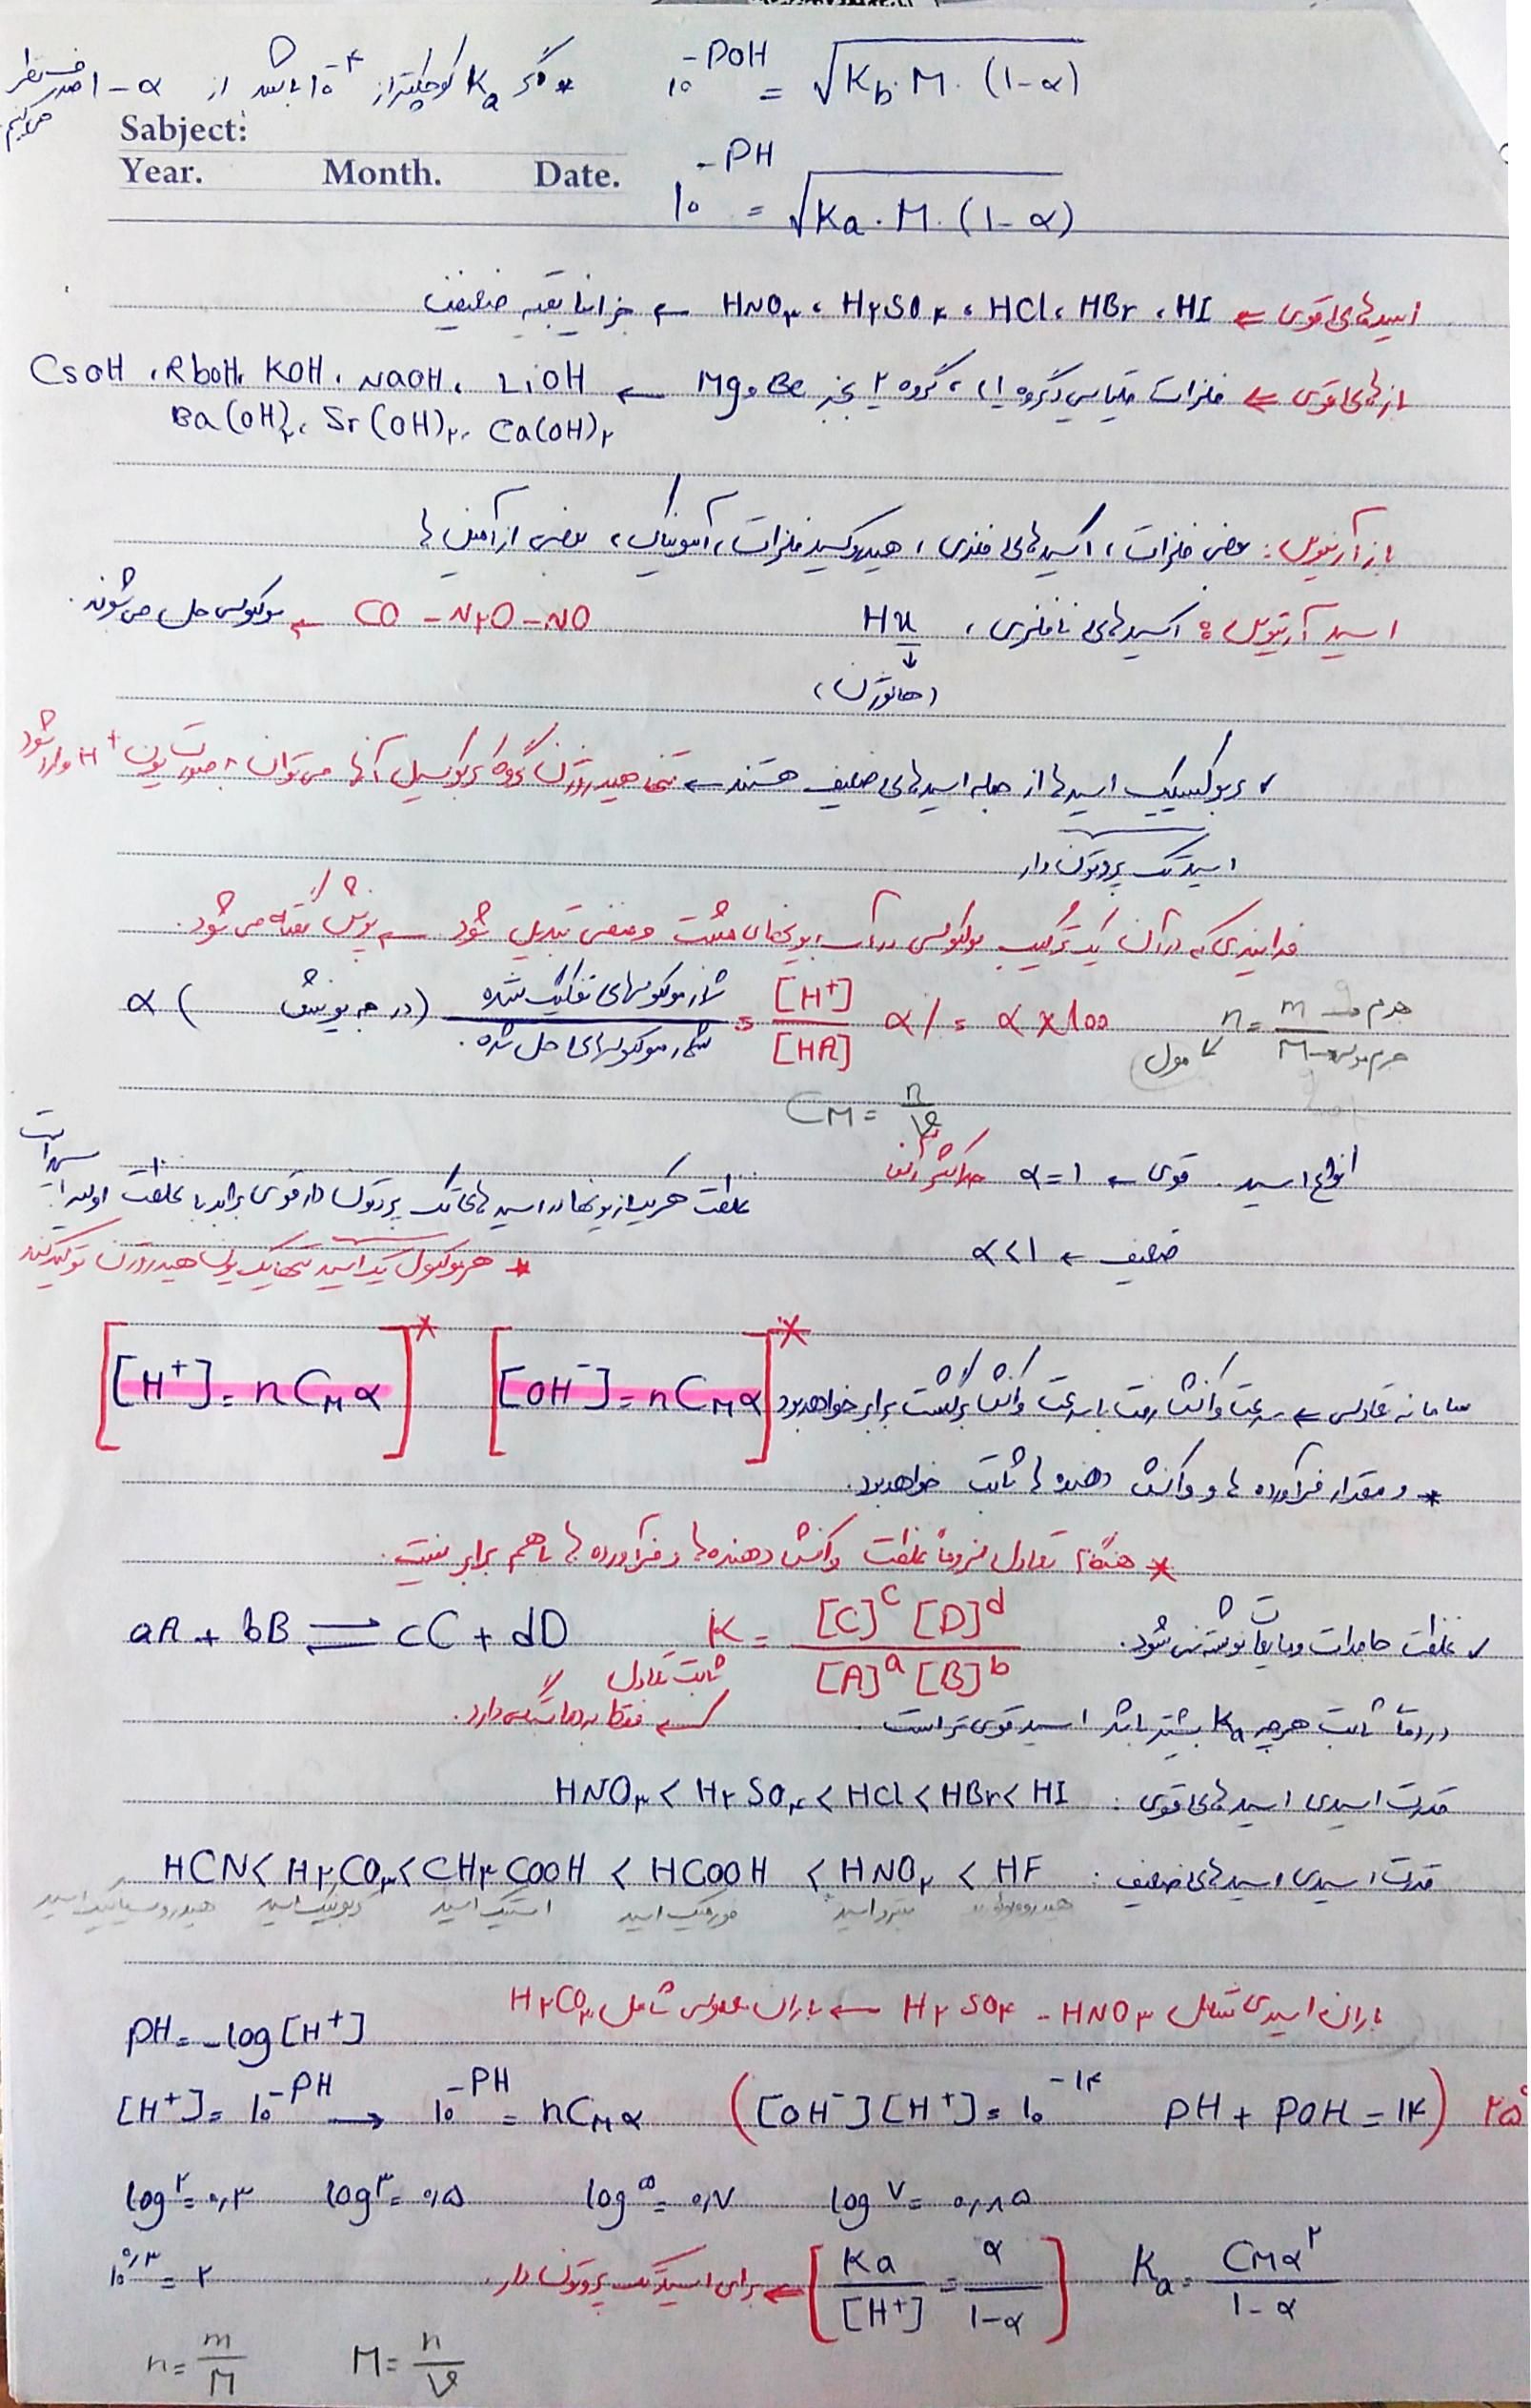 * اگر Ka کوچکتر از 10⁻⁴ باشد از α - 1 صرف نظر می‌کنیم
10^-POH = √Kb . M . (1-α)
Sabject:
Year. Month. Date.
10^-PH = √Ka . M . (1-α)
اسیدهای قوی ⇐ HNO۳ ، H۲SO۴ ، HCl ، HBr ، HI ← جز اینا بقیه ضعیفن
بازهای قوی ⇐ فلزات قلیایی (گروه ۱) ، گروه ۲ بجز Be و Mg ← LiOH ، NaOH ، KOH ، RbOH ، CsOH
Ca(OH)۲ ، Sr(OH)۲ ، Ba(OH)۲
باز آرنیوس : بعضی فلزات ، اکسیدهای فلزی ، هیدروکسید فلزات ، آمونیاک ، بعضی از آمین ها
اسید آرنیوس : اکسیدهای نافلزی ، Hx CO - N۲O - NO ← مولکولی حل می‌شوند .
↓
(هالوژن)
✓ کربوکسیلیک اسیدها از جمله اسیدهای ضعیف هستند ← تنها هیدروژن گروه کربوکسیل آنها می‌تواند به صورت یون H⁺ وارد شود
اسید تک پروتون دار
فرایندی که در آن یک ترکیب مولکولی در آب به یونهای مثبت و منفی تبدیل شود ← یونش گفته می‌شود .
α (درجه یونش) شمار مولکولهای تفکیک شده / شمار مولکولهای حل شده = [H⁺] / [HA] α% = α × 100 n = m / M جرم جرم مولی مول
CM = n / V
انواع اسید . قوی ← α = ۱
غلظت هریک از یونها در اسیدهای تک پروتون دار قوی برابر با غلظت اولیه اسید است
ضعیف ← α < 1
* هر مولکول یک اسید تنها یک یون هیدروژن تولید کند
[[H⁺] = n CM α]* [[OH⁻] = n CM α]* سامانه تعادلی ← سرعت واکنش رفت با سرعت واکنش برگشت برابر خواهد بود
* و مقدار فرآورده ها و واکنش دهنده ها ثابت خواهد بود .
* هنگام تعادل لزوماً غلظت واکنش دهنده‌ها و فرآورده ها باهم برابر نیست .
aA + bB ⇌ cC + dD K = [C]^c [D]^d / [A]^a [B]^b ✓ غلظت جامدات و مایعات نوشته نمی شود .
ثابت تعادل ← فقط به دما بستگی دارد .
در دمای ثابت هرچه Ka بیشتر باشد اسید قوی تر است .
قدرت اسیدی اسیدهای قوی : HNO۳ < H۲SO۴ < HCl < HBr < HI
قدرت اسیدی اسیدهای ضعیف : HCN < H۲CO۳ < CH۳COOH < HCOOH < HNO۲ < HF
هیدروسیانیک اسید کربنیک اسید استیک اسید فورمیک اسید نیترو اسید
باران اسیدی شامل H۲SO۴ - HNO۳ ← باران معمولی شامل H۲CO۳
pH = -log[H⁺]
[H⁺] = 10^-PH → 10^-PH = nCMα ([OH⁻][H⁺] = 10^-۱۴ pH + POH = ۱۴) ۲۵°
log۲ = ۰/۳ log۳ = ۰/۵ log۵ = ۰/۷ log۷ = ۰/۸۵
۱۰^۰/۳ = ۲ برای اسید تک پروتون دار ⇐ [Ka / [H⁺] = α / 1-α] Ka = CMα^۲ / 1-α
n = m / M M = n / V